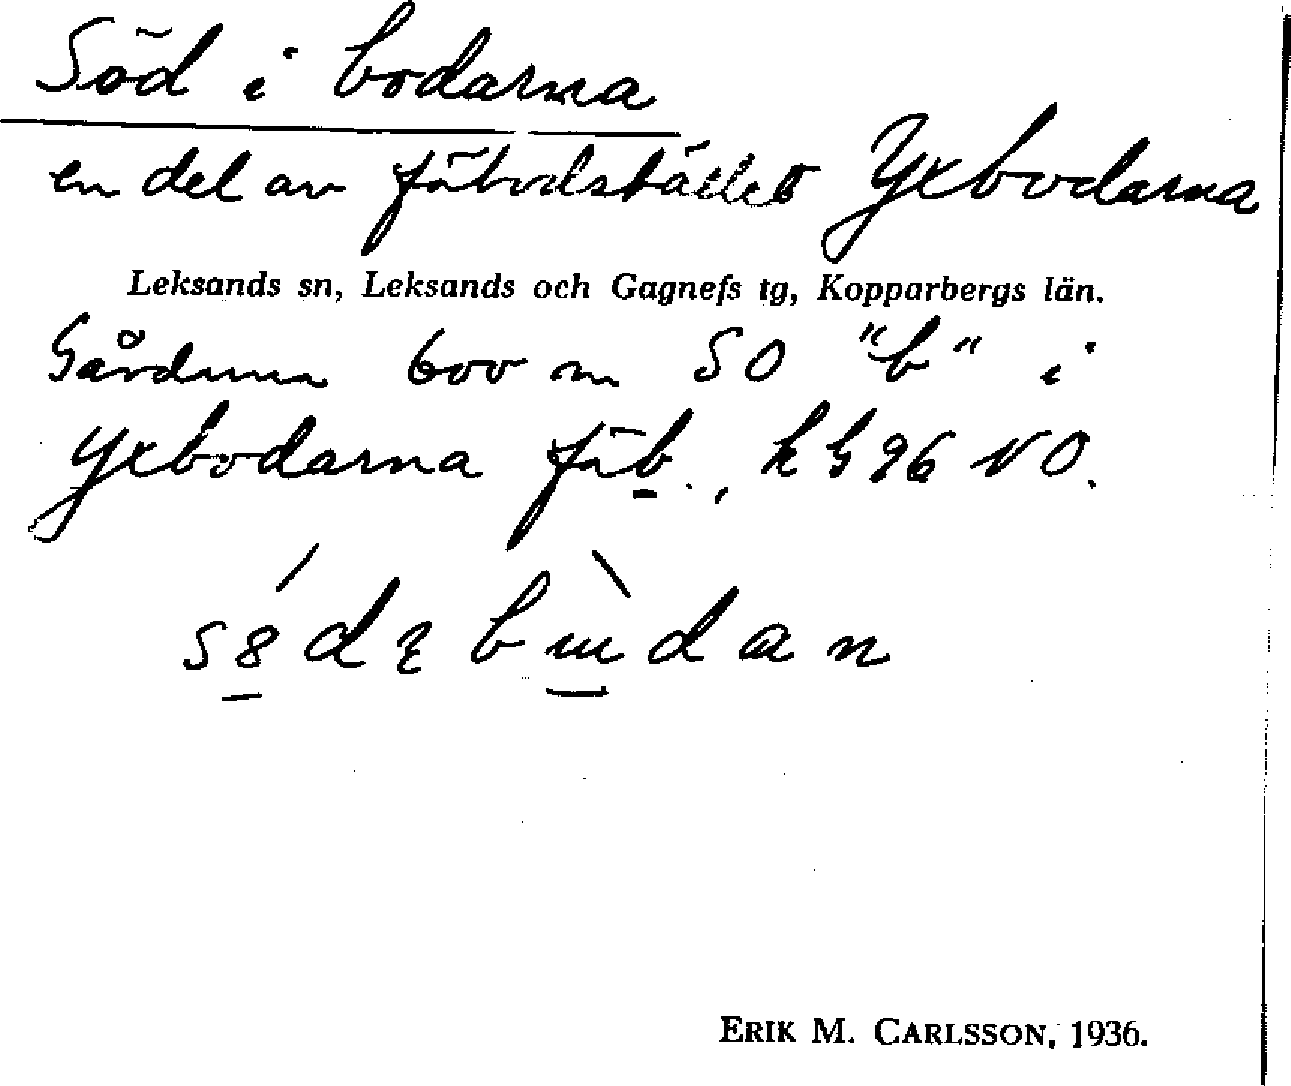 Söd i bodarna
en del av fäbodstället Yxbodarna
Leksands sn, Leksands och Gagnefs tg, Kopparbergs län.
Gårdarna 600 m SO "b" i
Yxbodarna fäb., kb 96 NO.
ERIK M. CARLSSON, 1936.